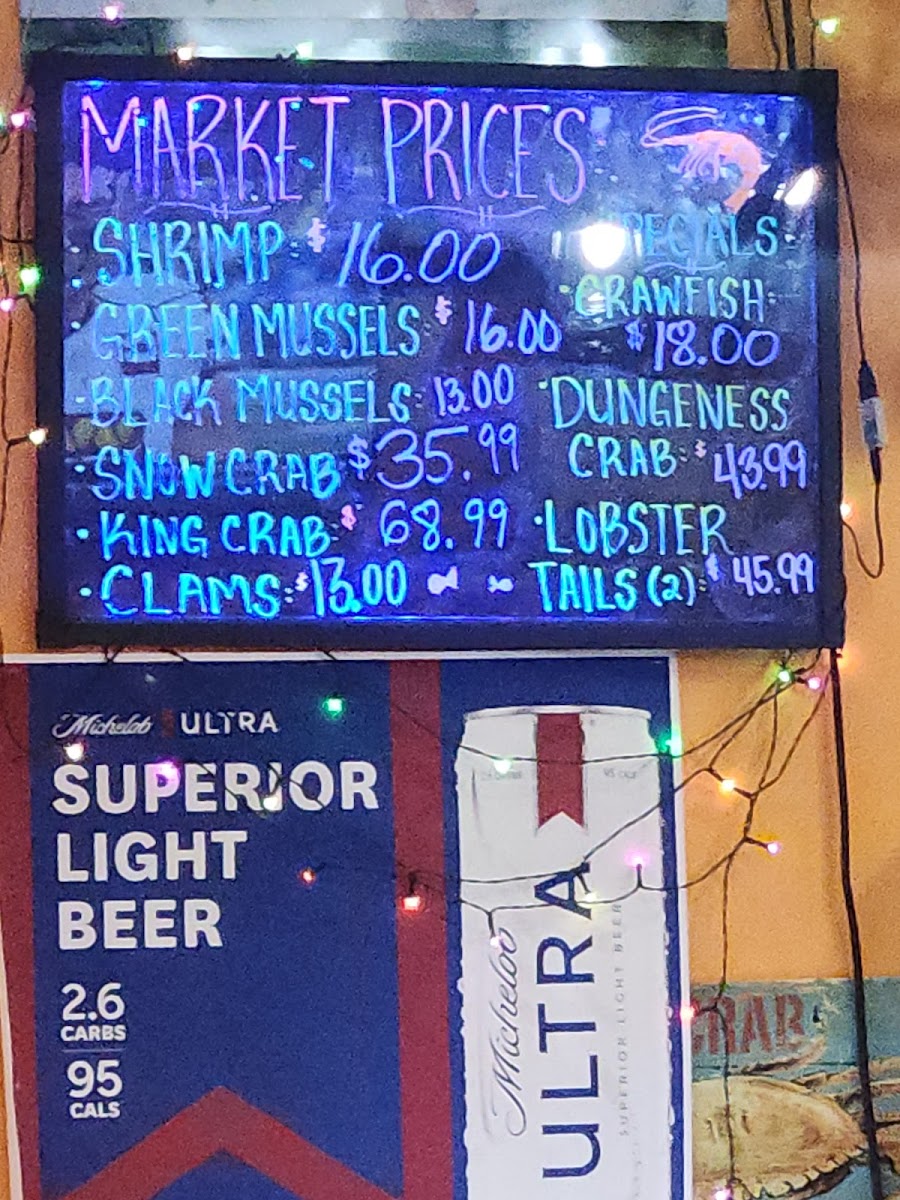 MARKET PRICES
• SHRIMP: $16.00
• GREEN MUSSELS: $16.00
• BLACK MUSSELS: 13.00
• SNOW CRAB $35.99
• KING CRAB: $68.99
• CLAMS: $13.00
SPECIALS
• CRAWFISH:
$18.00
• DUNGENESS
CRAB: $43.99
• LOBSTER
TAILS (2): $45.99
Michelob ULTRA
SUPERIOR
LIGHT
BEER
2.6
CARBS
95
CALS
Michelob
ULTRA
SUPERIOR LIGHT BEER
CRAB